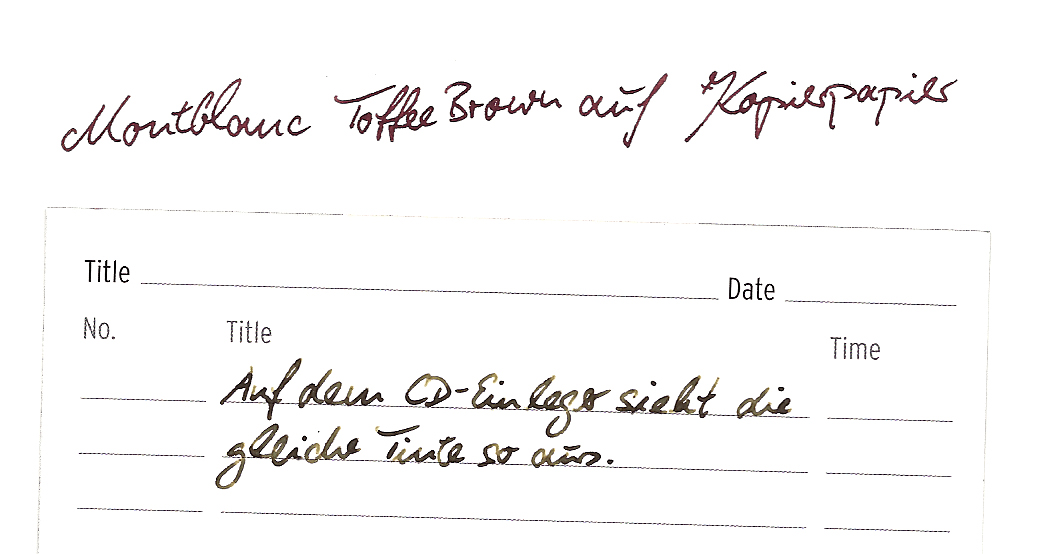 Montblanc Toffee Brown auf Kopierpapier
Title Date
No. Title Time
Auf dem CD-Einleger sieht die
gleiche Tinte so aus.